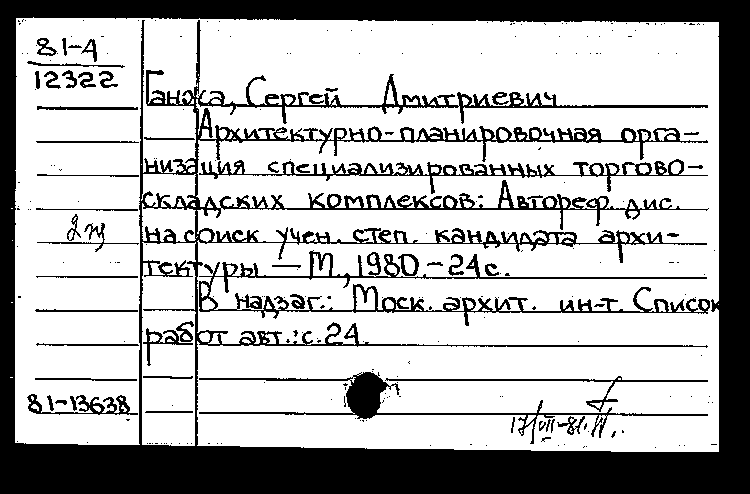 81-4
12322
Ганжа, Сергей Дмитриевич
Архитектурно-планировочная орга-
низация специализированных торгово-
складских комплексов: Автореф. дис.
на соиск. учен. степ. кандидата архи-
тектуры. — М., 1980. - 24 с.
В надзаг.: Моск. архит. ин-т. Список
работ авт.: с. 24.
81-13638